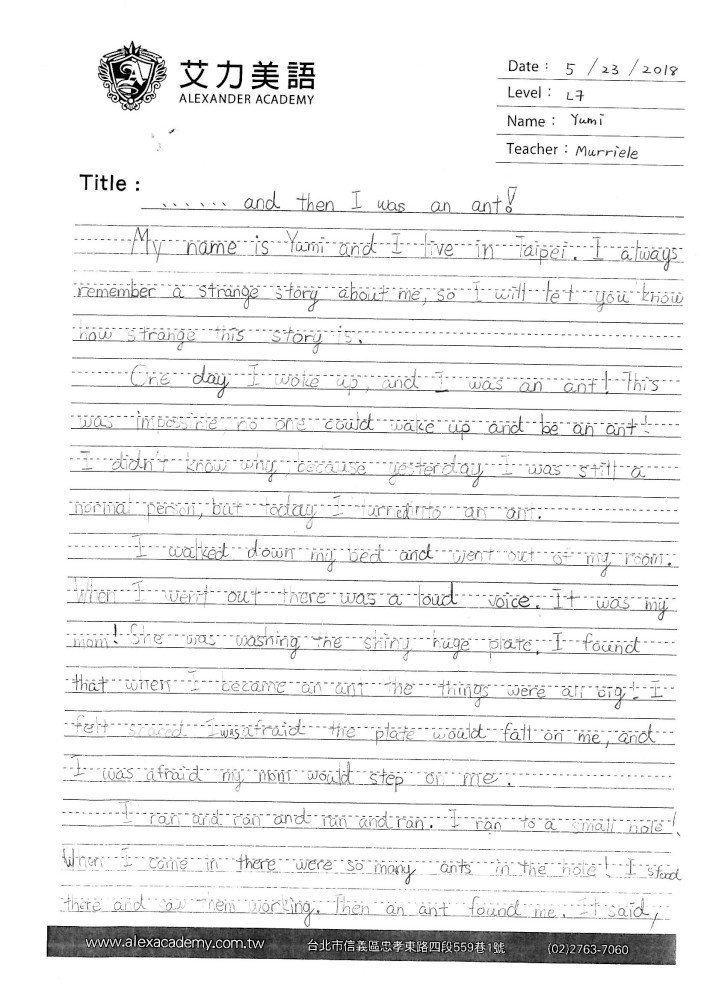 艾力美語
ALEXANDER ACADEMY
Date : 5 / 23 / 2018
Level : L7
Name : Yumi
Teacher : Murriele
Title : ...... and then I was an ant!
My name is Yumi and I live in Taipei. I always
remember a strange story about me, so I will let you know
how strange this story is.
One day I woke up, and I was an ant! This
was impossible, no one could wake up and be an ant!
I didn't know why, because yesterday I was still a
normal person, but today I turned into an ant.
I walked down my bed and went out of my room.
When I went out there was a loud voice. It was my
mom! She was washing the shiny huge plate. I found
that when I became an ant the things were all big! I
felt scared I was afraid the plate would fall on me, and
I was afraid my mom would step on me.
I ran and ran and ran and ran. I ran to a small hole!
When I come in there were so many ants in the hole! I stood
there and saw them working. Then an ant found me. It said,
www.alexacademy.com.tw 台北市信義區忠孝東路四段559巷1號 (02)2763-7060